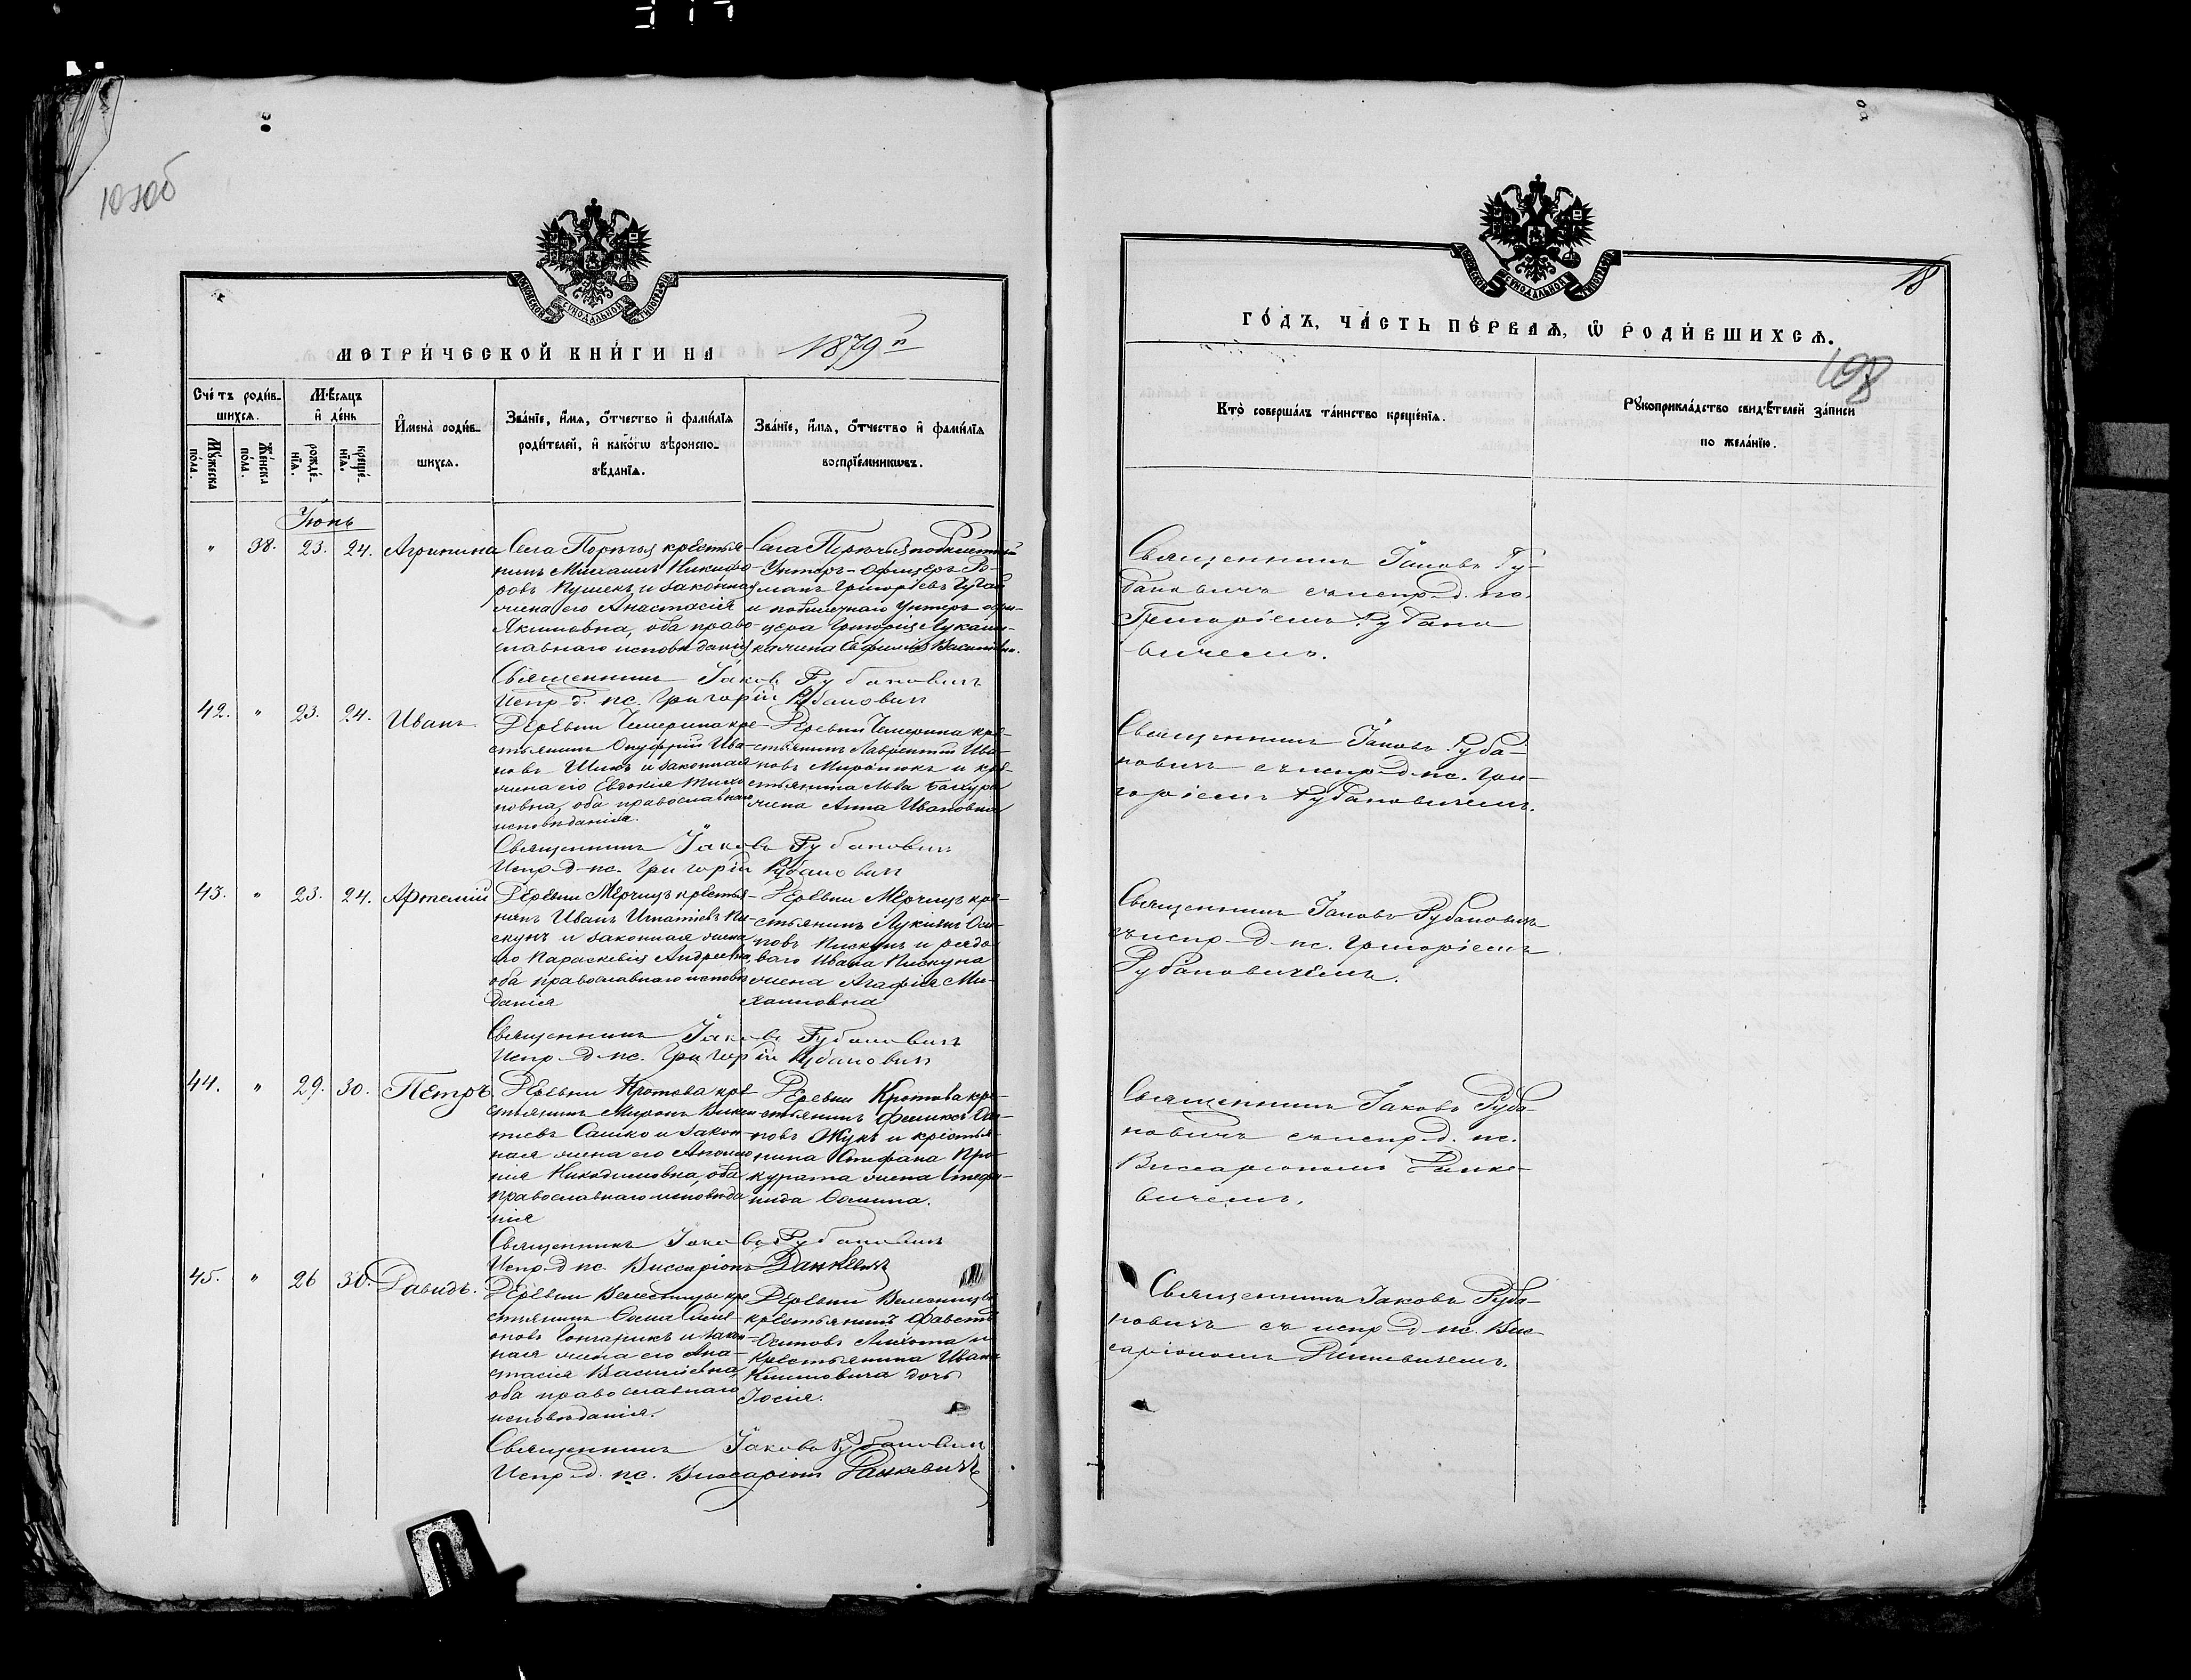 МЕТРИ́ЧЕСКОЙ КНИ́ГИ НА 1879 й
Счетъ роди́в-
шихся.
Мꙋжеска по́ла.
Же́нска по́ла.
Мѣ́сяцъ
и҆ де́нь
рожде́-
нїѧ.
креще́-
нїѧ.
И҆мена̀ роди́в-
шихся.
Зва́нїе, и҆́мѧ, ѻ҆́тчество и҆ фами́лїѧ
роди́телей, и҆ како́гѡ вѣроиспо-
вѣ́данїѧ.
Зва́нїе, и҆́мѧ, ѻ҆́тчество и҆ фами́лїѧ
воспрїе́мникѡвъ.
Іюнь
" 38. 23. 24. Агрипина
Села Порѣчья крестья-
нинъ Михаилъ Никифо-
ровъ и законная
жена его Анастасія
Акимовна, оба право-
славнаго исповѣданія
Села Порѣчья
Унтеръ-Офицеръ Ро-
манъ Григорьевъ
и Унтеръ офи-
цера Григорія Лукаш-
жена Евфимія
Священникъ Іаковъ Рубановичъ
Испр. д. пс. Григорій Рубановичъ
42. " 23. 24. Иванъ
Деревни Чемерина кре-
стьянинъ Онуфрій Ива-
новъ и законная
жена его Евдокія Тихо
новна, оба православнаго
исповѣданія.
Деревни Чемерина кре-
стьянинъ Лаврентій Ива-
новъ Миронюкъ и кре-
стьянина Льва
жена Анна Ивановна
Священникъ Іаковъ Рубановичъ
Испр. д. пс. Григорій Рубановичъ
43. " 23. 24. Артемій
Деревни Мерчицъ крестья-
нинъ Иванъ Игнатіевъ Пи-
скунъ и законная жена
его Параскевія Андреевна,
оба православнаго исповѣ
данія
Деревни Мерчицъ кре-
стьянинъ Лукіянъ Оси-
повъ Пискунъ и рядо-
ваго Ивана Пискуна
жена Агафія Ми-
хайловна
Священникъ Іаковъ Рубановичъ
Испр. д. пс. Григорій Рубановичъ
44. " 29. 30. Петръ.
Деревни Кротова кре-
стьянинъ Миронъ Викен
тіевъ Сашко и закон-
ная жена его Аполло
нія Никодимовна, оба
православнаго исповѣда
нія
Деревни Кротова кре-
стьянинъ Феликсъ Оси-
повъ Жукъ и крестья-
нина Стефана Про-
курата жена Стефа-
нида
Священникъ Іаковъ Рубановичъ
Испр. д. пс. Виссаріонъ Данкевичъ
45. " 26 30. Давидъ.
Деревни Велесницы кре
стьянинъ Сим-
оновъ Гончарикъ и закон-
ная жена его Ана-
стасія Васильевна,
оба православнаго
исповѣданія.
Деревни Велесницы
крестьянинъ
Осиповъ и
крестьянина Ивана
дочь
Священникъ Іаковъ Рубановичъ
Испр. д. пс. Виссаріонъ Данкевичъ
18
108
ГО́ДЪ, ЧА́СТЬ ПЕ́РВАѦ, Ѽ РОДИ́ВШИХСѦ.
Кто̀ соверша́лъ та́инство креще́нїѧ.
Рꙋкоприкла́дство свидѣ́телей за́писи
по жела́нїю.
Священникъ Іаковъ Ру-
бановичъ съ испр. д. пс.
Григоріемъ Рубано
вичемъ.
Священникъ Іаковъ Руба-
новичъ съ испр. д. пс. Гри-
горіемъ Рубановичемъ.
Священникъ Іаковъ Рубановичъ
съ испр. д. пс. Григоріемъ
Рубановичемъ.
Священникъ Іаковъ Руба-
новичъ съ испр. д. пс.
Виссаріономъ Данке-
вичемъ.
Священникъ Іаковъ Руба-
новичъ съ испр. д. пс. Вис-
саріономъ Данкевичемъ.